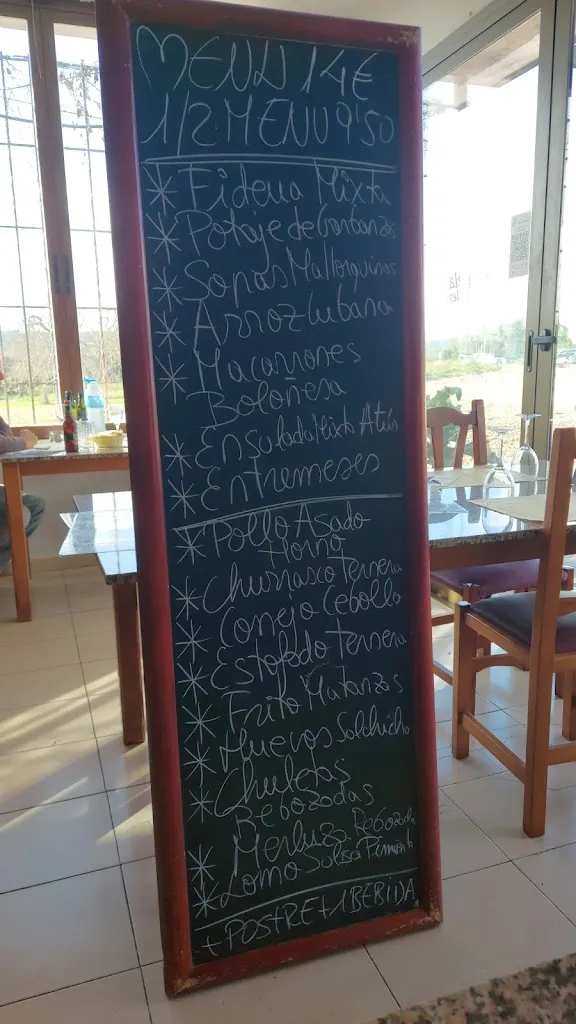 MENU 14€
1/2 MENU 9'50
* Fideua Mixta
* Potaje de Garbanzos
* Sopas Mallorquinas
* Arroz Cubana
* Macarrones
Boloñesa
* Ensalada Mixta Atún
* Entremeses
* Pollo Asado
Horno
* Churrasco Ternera
* Conejo Cebolla
* Estofado Ternera
* Frito Matanzas
* Huevos Salchicha
* Chuletas
Rebozadas
* Merluza Rebozada
* Lomo Salsa Pimienta
+ POSTRE + 1 BEBIDA